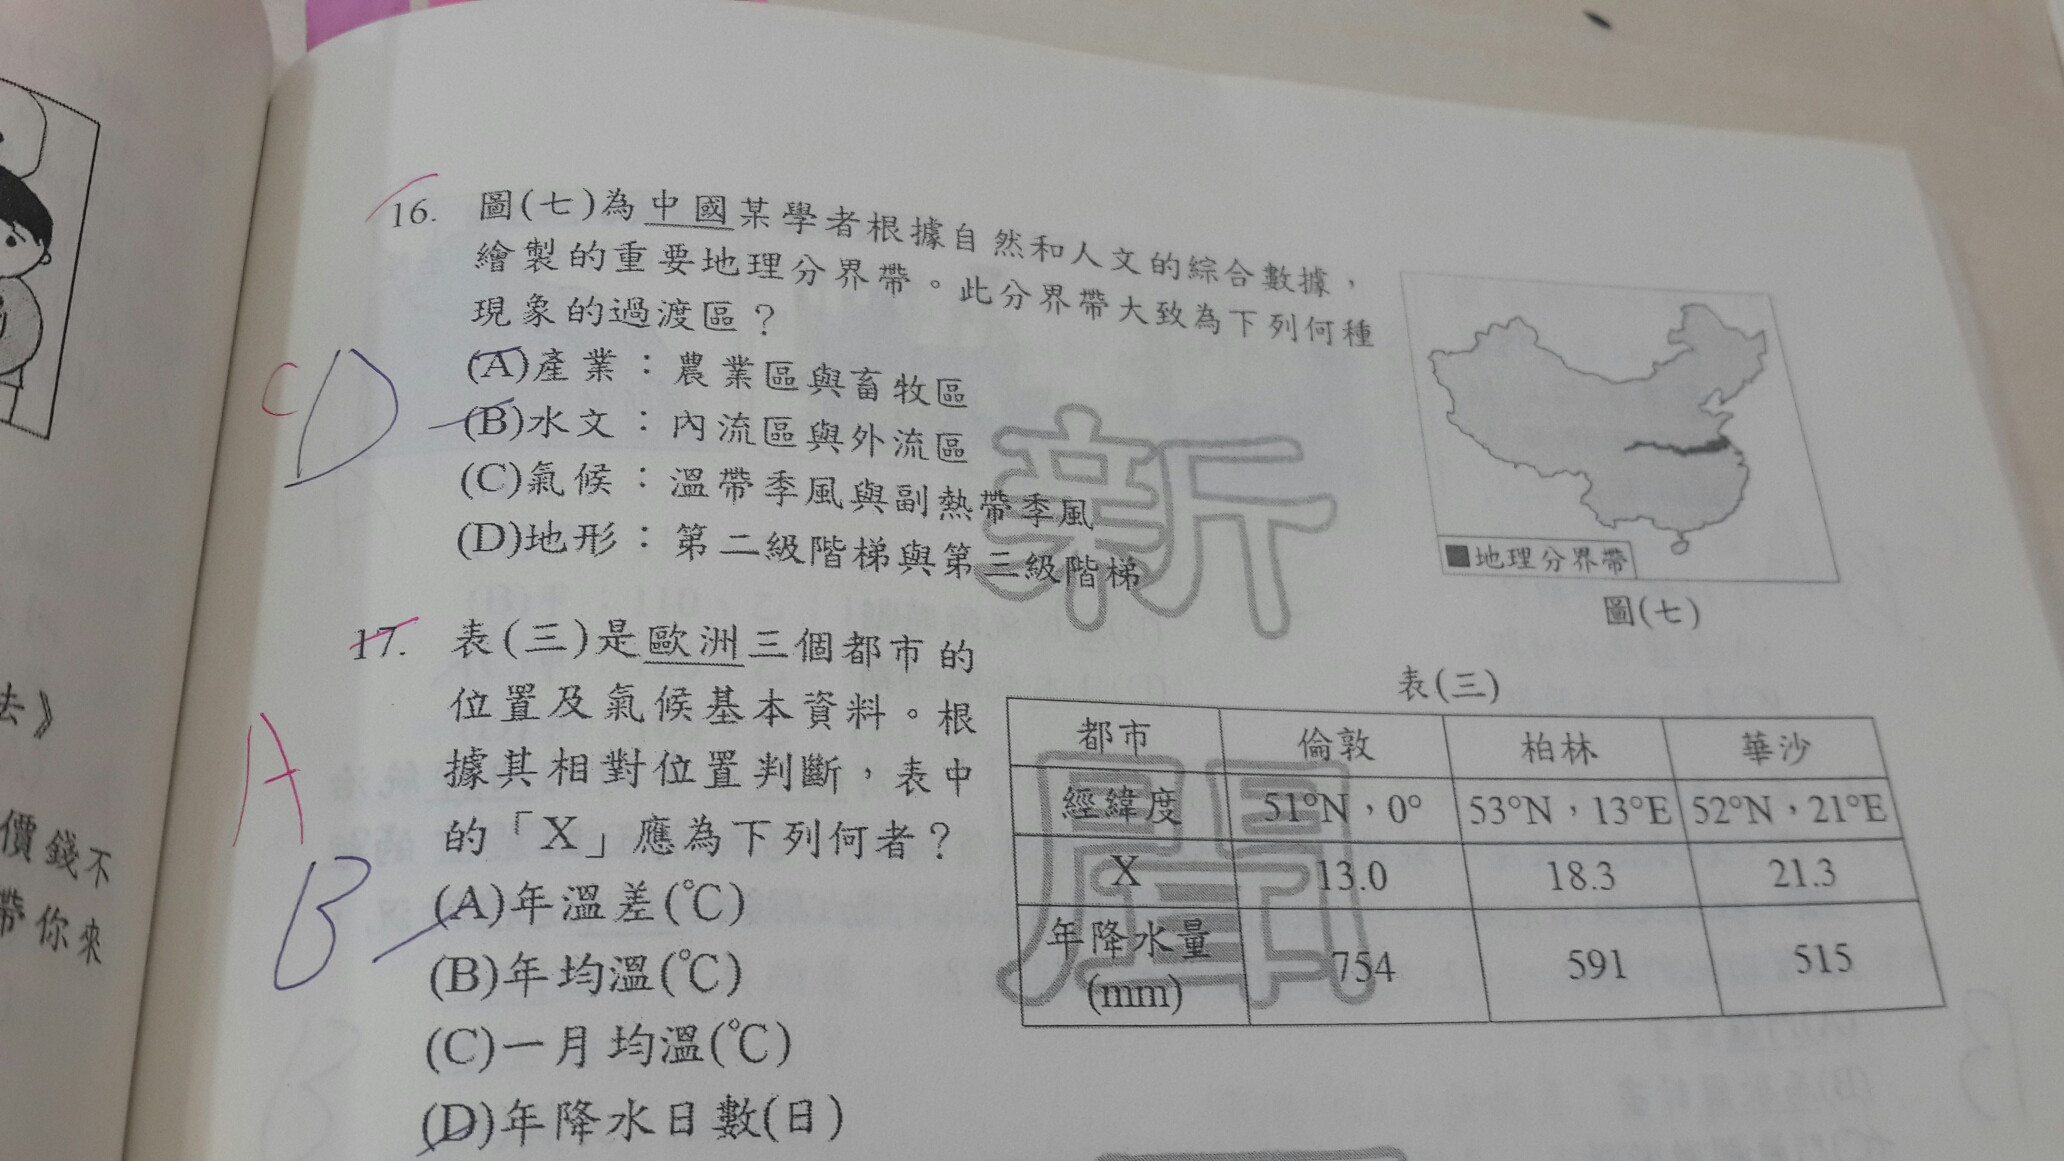 去》
價錢不
帶你來
16. 圖(七)為中國某學者根據自然和人文的綜合數據，
繪製的重要地理分界帶。此分界帶大致為下列何種
現象的過渡區？
(A)產業：農業區與畜牧區
(B)水文：內流區與外流區
(C)氣候：溫帶季風與副熱帶季風
(D)地形：第二級階梯與第三級階梯
C
D
地理分界帶
圖(七)
17. 表(三)是歐洲三個都市的
位置及氣候基本資料。根
據其相對位置判斷，表中
的「X」應為下列何者？
(A)年溫差(℃)
(B)年均溫(℃)
(C)一月均溫(℃)
(D)年降水日數(日)
A
B
表(三)
都市 倫敦 柏林 華沙
經緯度 51°N，0° 53°N，13°E 52°N，21°E
X 13.0 18.3 21.3
年降水量 754 591 515
(mm)